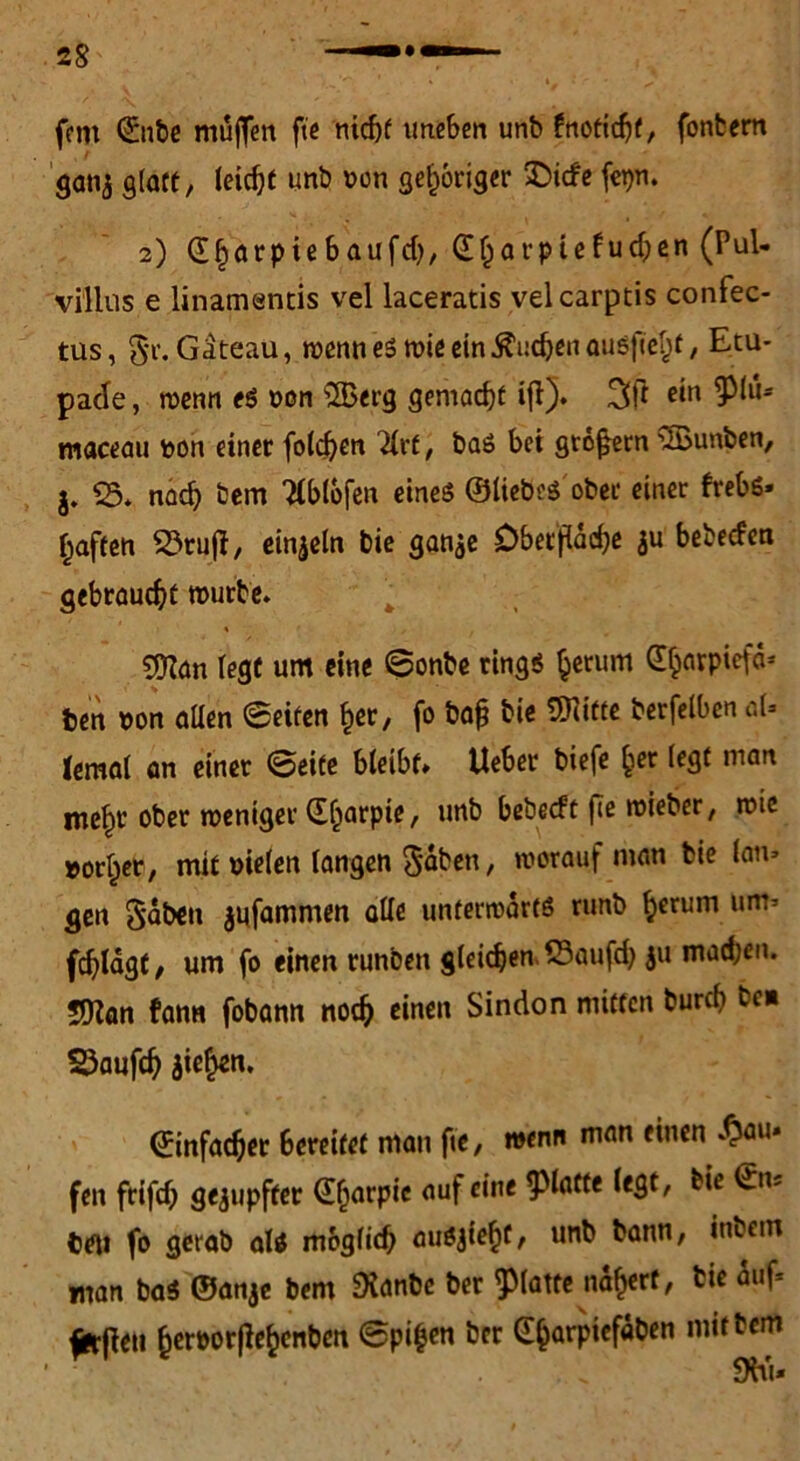 28
sem Ende müssen sie nicht uneben und knoticht, sondern
ganz glatt, leicht und von gehöriger Dicke seyn.
2) Charpiebausch, Charpiekuchen (Pul-
villus e linamentis vel laceratis vel carptis confec-
tus, Fr. Gâteau, wenn es wie ein Kuchen aussieht, Etu-
pade, wenn es von Werg gemacht ist). Ist ein Plü-
maceau von einer solchen Art, das bei größern Wunden,
z. B. nach dem Ablösen eines Gliedes oder einer krebs-
haften Brust, einzeln die ganze Oberfläche zu bedecken
gebraucht wurde.
Man legt um eine Sonde rings herum Charpiefä-
den von allen Seiten her, so daß die Mitte derselben al-
lemal an einer Seite bleibt. Ueber diese her legt man
mehr oder weniger Charpie, und bedeckt sie wieder, wie
vorher, mit vielen langen Fäden, worauf man die lan-
gen Fäden zusammen alle unterwärts rund herum um-
schlägt, um so einen runden gleichen Bausch zu machen.
Man kann sodann noch einen Sindon mitten durch den
Bausch ziehen.
Einfacher bereitet man sie, wenn man einen Hau-
fen frisch gezupfter Charpie auf eine Platte legt, die En-
den so gerad als möglich auszieht, und dann, indem
man das Ganze dem Rande der Platte nähert, die äus-
sersten hervorstehenden Spitzen der Charpiefäden mit dem
Rü-